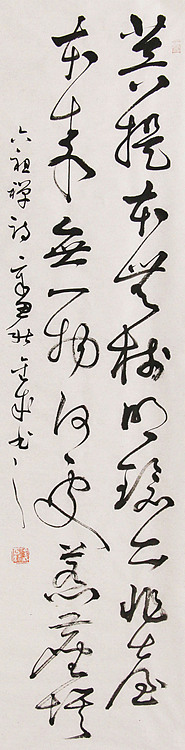 菩提本無樹明鏡亦非臺
本來無一物何處惹塵埃
六祖禪詩 秋 書